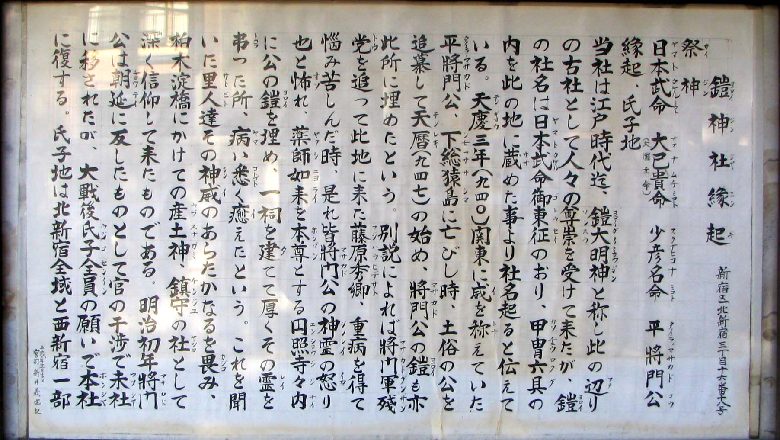 鎧神社縁起 新宿区北新宿三丁目十六番十八号
祭神
日本武命 大己貴命 少彦名命 平将門公
縁起、氏子地
当社は江戸時代迄、鎧大明神と称し此の辺り
の古社として人々の尊崇を受けて来たが、鎧
の社名は日本武命御東征のおり、甲冑六具の
内を此の地に蔵めた事より社名起ると伝えて
いる。天慶三年(九四〇)関東に威を称えていた
平將門公、下総猿島に亡びし時、土俗の公を
追慕して天暦(九四七)の始め、將門公の鎧も亦
此所に埋めたという。別説によれば將門軍残
党を追って此地に来た藤原秀郷、重病を得て
悩み苦しんだ時、是れ皆將門公の神霊の怒り
也と怖れ、薬師如来を本尊とする円照寺々内
に公の鎧を埋め、一祠を建てて厚くその霊を
弔った所、病い悉く癒えたという。これを聞
いた里人達その神威のあらたかなるを畏み、
柏木淀橋にかけての産土神、鎮守の社として
深く信仰して来たものである。明治初年將門
公は朝廷に反したものとして官の干渉で末社
に移されたが、大戦後氏子全員の願いで本社
に復する。氏子地は北新宿全域と西新宿一部